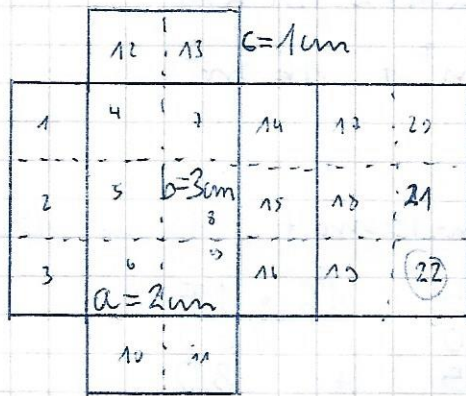 12 13 c=1cm
1 4 7 14 17 20
2 5 b=3cm 8 15 18 21
3 6 9 16 19 22
a=2cm
10 11